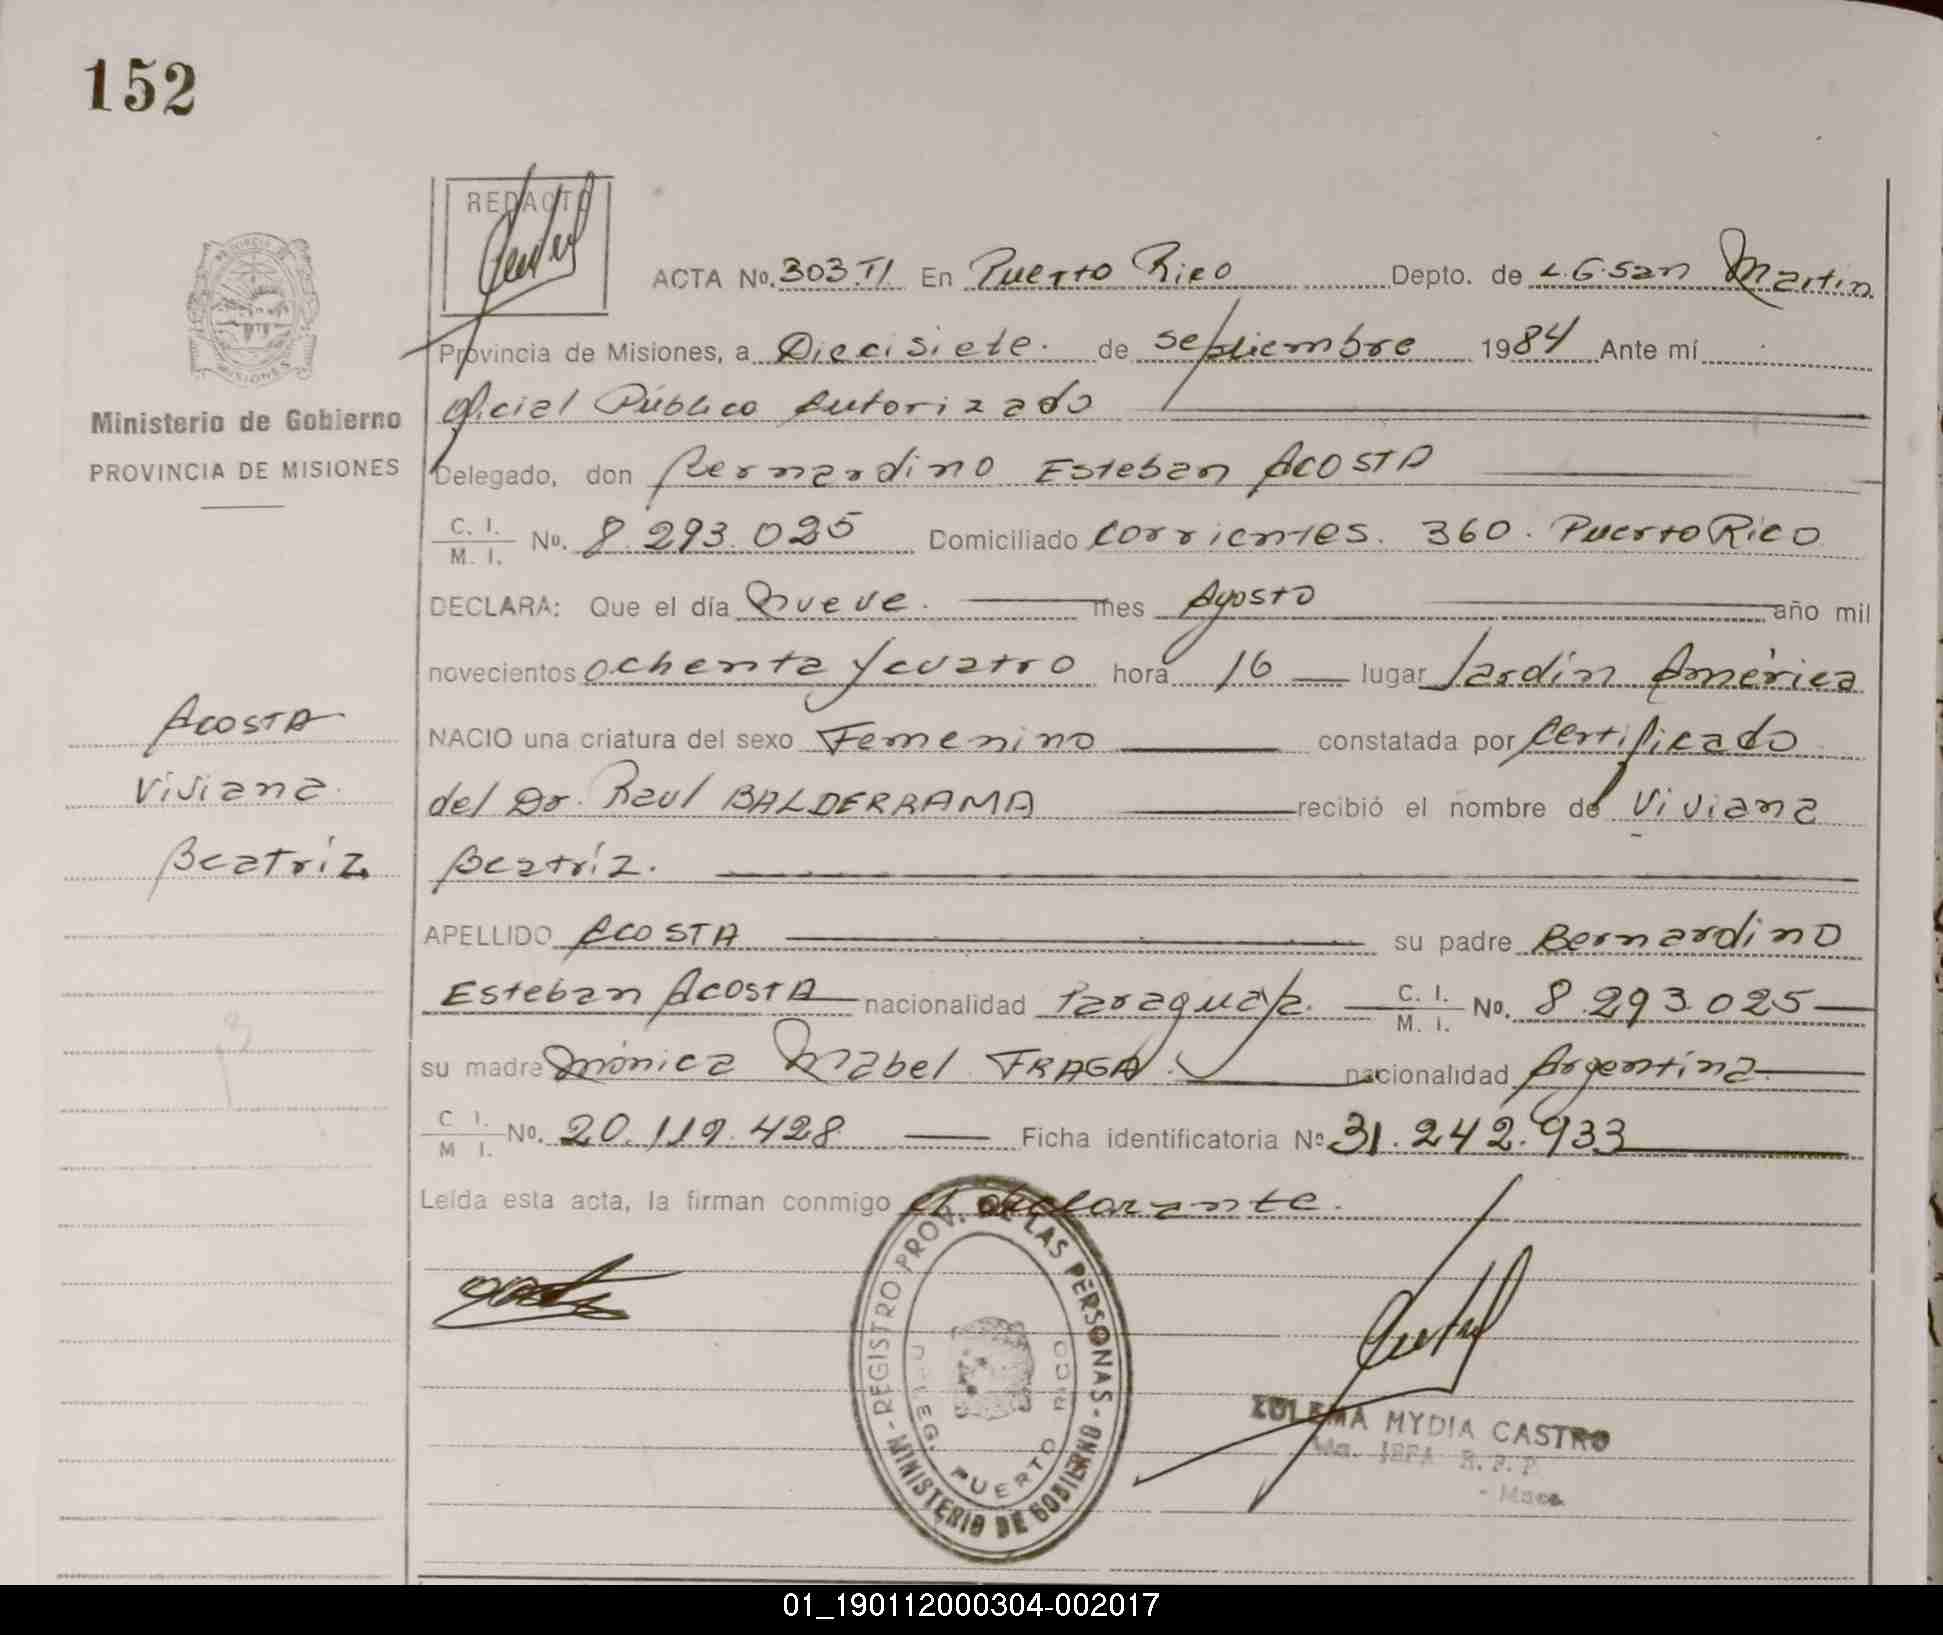 152
REDACTO
ACTA No. 303 TI. En Puerto Rico Depto. de L.G. San Martin
Provincia de Misiones, a Diecisiete. de septiembre 1984 Ante mí
Oficial Público Autorizado
Ministerio de Gobierno
PROVINCIA DE MISIONES
Delegado, don Bernardino Esteban ACOSTA
C. I. / M. I. No. 8.293.025 Domiciliado Corrientes. 360. Puerto Rico
DECLARA: Que el día Nueve. mes Agosto año mil
novecientos ochenta y cuatro hora 16 lugar Jardín América
NACIO una criatura del sexo Femenino constatada por certificado
del Dr. Raul BALDERRAMA recibió el nombre de Viviana
Beatríz.
Acosta
Viviana.
Beatríz
APELLIDO ACOSTA su padre Bernardino
Esteban ACOSTA nacionalidad Paraguaya. C. I. / M. I. No. 8.293.025
su madre Mónica Mabel FRAGA. nacionalidad Argentina
C I. / M I. No. 20.119.428 Ficha identificatoria Nº 31.242.933
Leída esta acta, la firman conmigo el declarante.
- REGISTRO PROV. DE LAS PERSONAS - MINISTERIO DE GOBIERNO
DELEG. PUERTO RICO
ZULEMA MYDIA CASTRO
JEFA R. P. P.
01_190112000304-002017